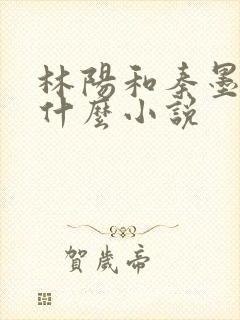 林陽和秦墨
什麼小說
賀歲帝